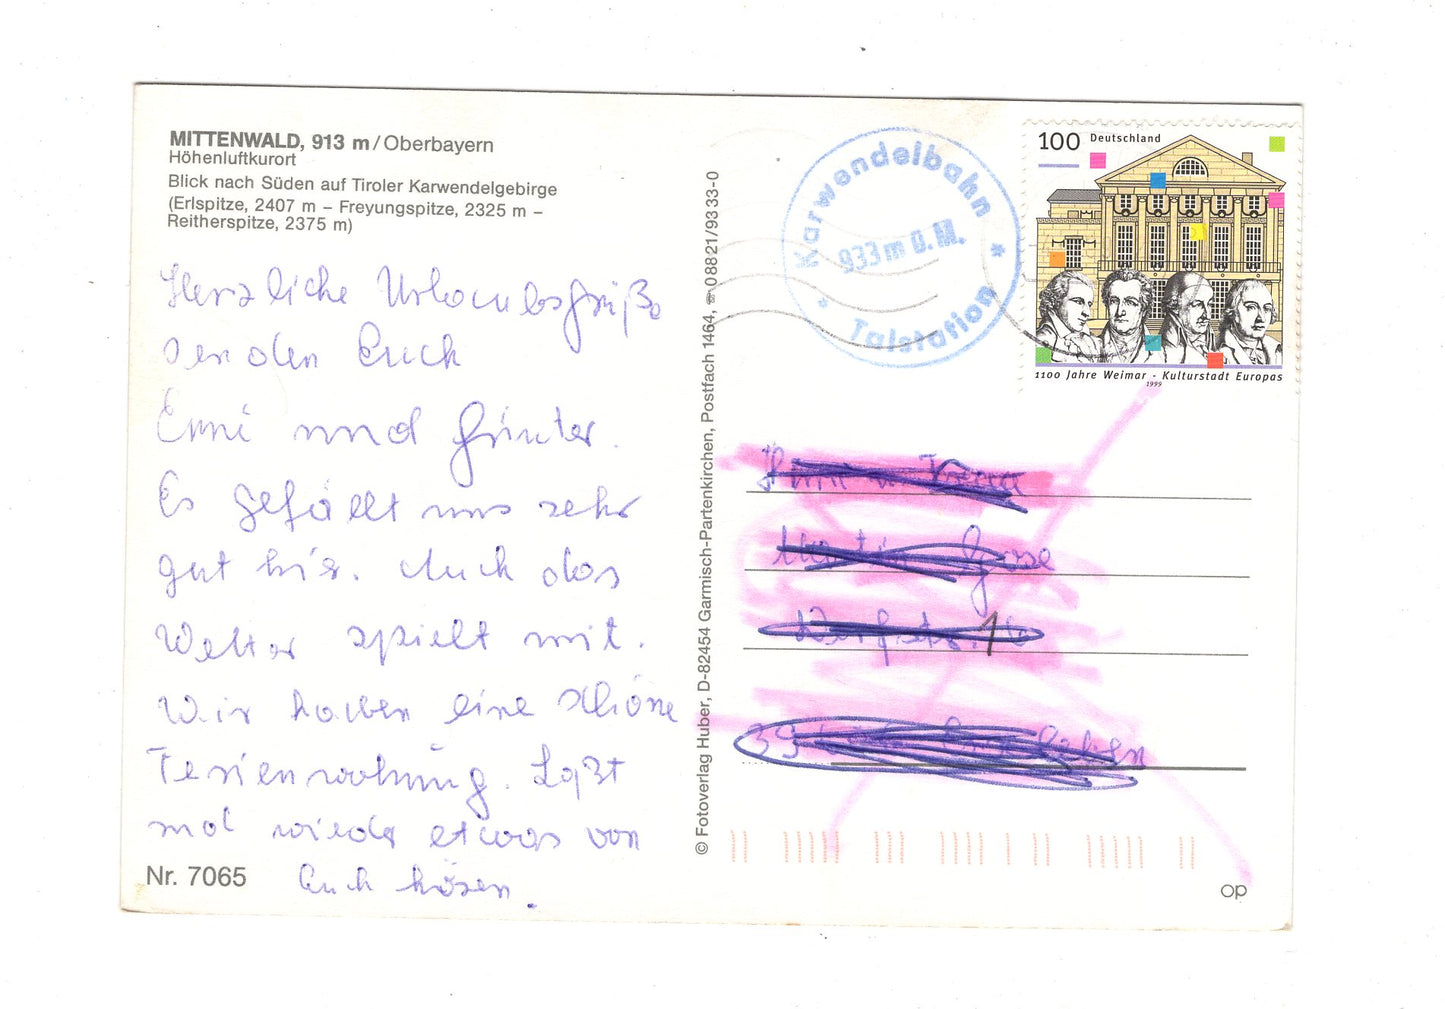 MITTENWALD, 913 m/Oberbayern
Höhenluftkurort
Blick nach Süden auf Tiroler Karwendelgebirge
(Erlspitze, 2407 m – Freyungspitze, 2325 m –
Reitherspitze, 2375 m)
Herzliche Urlaubsgrüße
senden Euch
Erni und Günter.
Es gefällt uns sehr
gut hier. Auch das
Wetter spielt mit.
Wir haben eine schöne
Ferienwohnung. Laßt
mal wieder etwas von
Euch hören.
Nr. 7065
© Fotoverlag Huber, D-82454 Garmisch-Partenkirchen, Postfach 1464, ☎ 08821/9333-0
Karwendelbahn
933m ü.M.
* Talstation *
100 Deutschland
1100 Jahre Weimar - Kulturstadt Europas
1999
op